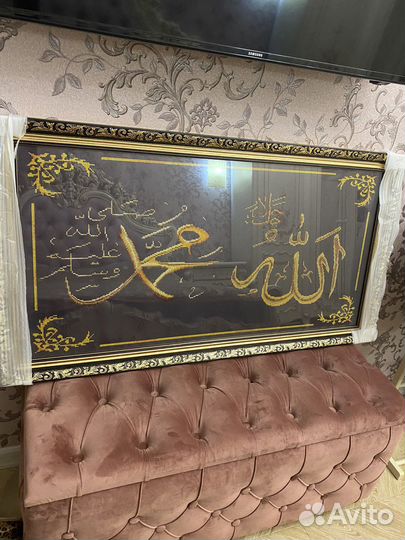 SAMSUNG
الله
جل جلاله
محمد
صلى
الله
عليه
وسلم
Avito